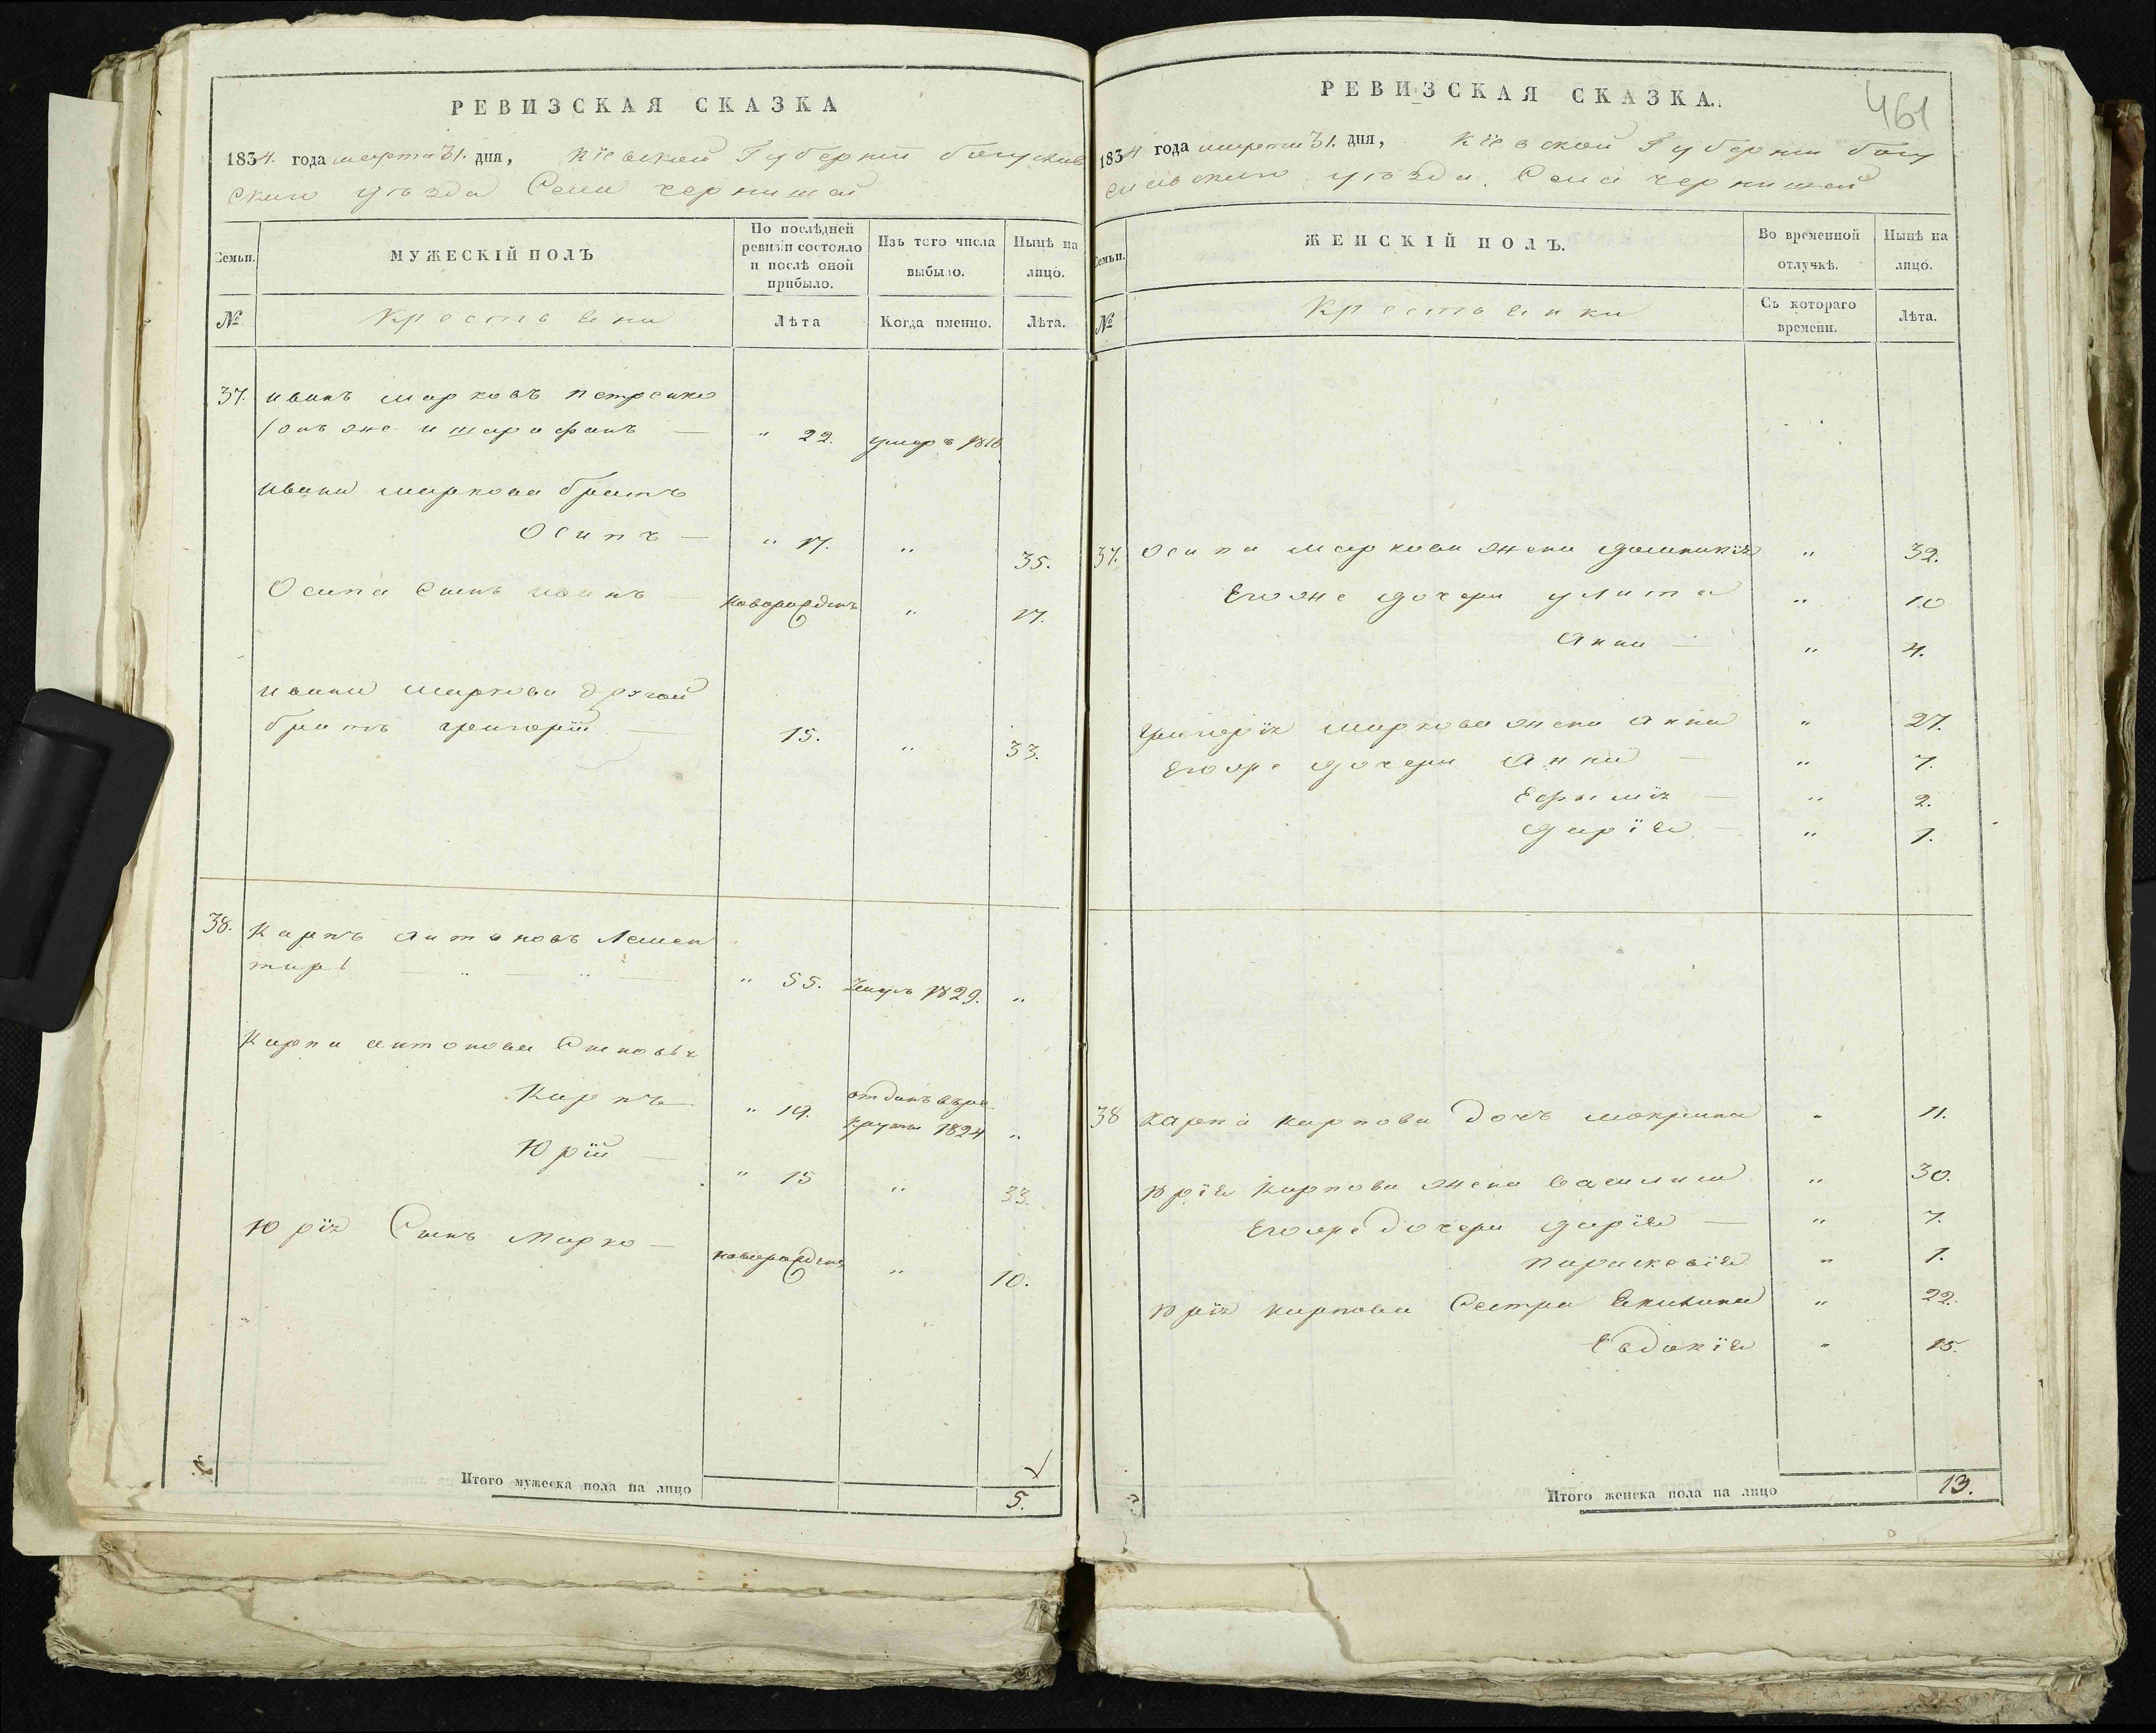 РЕВИЗСКАЯ СКАЗКА
1834. года марта 31. дня, Кіевской Губерніи богуслав
скаго уѣзда Села чернишей
Семьи.
МУЖЕСКІЙ ПОЛЪ
По послѣдней
ревизіи состояло
и послѣ оной
прибыло.
Изъ того числа
выбыло.
Нынѣ на
лицо.
№
Крестьяни
Лѣта
Когда именно.
Лѣта.
37. иванъ марковъ петренко
онъ же и шарафанъ — " 22. умеръ 1818
ивана маркова братъ
Осипъ — " 17. " 35.
Осипа Сынъ иванъ — новорожденъ " 17.
ивана маркова другой
братъ григорій — 15. " 33.
38. Карпъ антоновъ
" 55. умеръ 1829. "
Карпа антонова Сыновья
Карпъ " 19. отданъ въ ре
круты 1824 "
Юрій — " 15 " 33.
Юрія Сынъ Марко — новорожденъ " 10.
Итого мужеска пола на лицо 5.
461
РЕВИЗСКАЯ СКАЗКА.
1834 года марта 31. дня, Кіевской Губерніи богу
славскаго уѣзда. Села чернишей
Семьи.
ЖЕНСКІЙ ПОЛЪ.
Во временной
отлучкѣ.
Нынѣ на
лицо.
№
Крестьянки
Съ котораго
времени.
Лѣта.
37. Осипа маркова жена домникія " 32.
Его же дочери улита " 10
Анна — " 4.
григорія маркова жена Анна " 27.
Его же дочери Анна — " 7.
Ефимія — " 2.
дарія — " 1.
38 Карпа карпова дочъ мокрина " 11.
Юрія Карпова жена василиса " 30.
Его же дочери дарія — " 7.
параскевія " 1.
Юрія карпова Сестра " 22.
Евдокія " 15.
Итого женска пола на лицо 13.